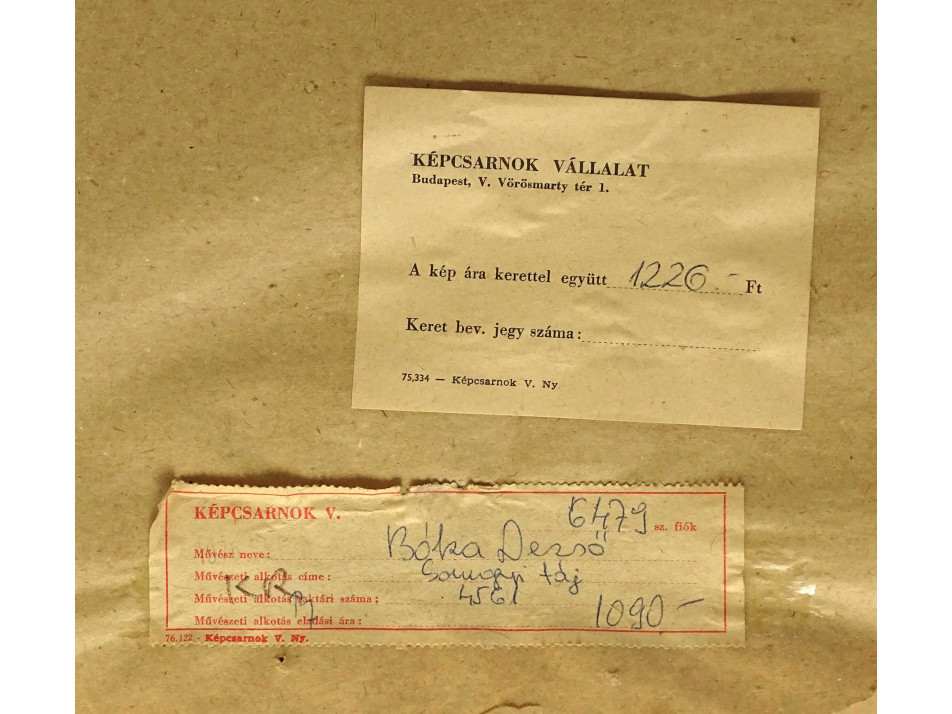 KÉPCSARNOK VÁLLALAT
Budapest, V. Vörösmarty tér 1.
A kép ára kerettel együtt 1226.- Ft
Keret bev. jegy száma:
75,334 — Képcsarnok V. Ny
KÉPCSARNOK V. 6479 sz. fiók
Művész neve: Bóka Dezső
Művészeti alkotás címe: Somogyi táj
Művészeti alkotás raktári száma: 4561
Művészeti alkotás eladási ára: 1090-
76,122 - Képcsarnok V. Ny.